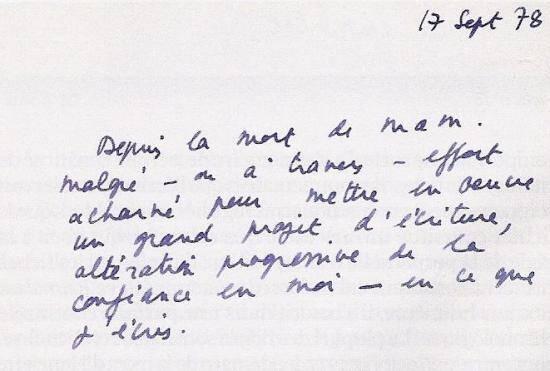 17 Sept 78
Depuis la mort de mam.
malgré ou à travers – effort
acharné pour mettre en oeuvre
un grand projet d'écriture,
altération progressive de la
confiance en moi – en ce que
j'écris.